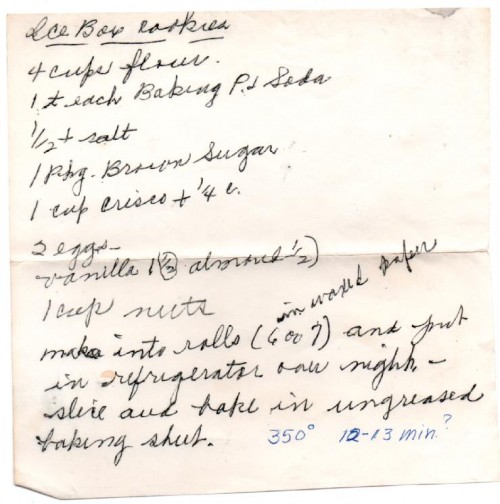 Ice Box Cookies
4 cups flour.
1 t each Baking P. & Soda
1/2 t salt
1 Pkg. Brown Sugar
1 cup Crisco + 1/4 c.
2 eggs -
vanilla 1 (1/2) almond 1/2)
1 cup nuts
in waxed paper
make into rolls (6 or 7) and put
in refrigerator over night. -
slice and bake in ungreased
baking sheet. 350° 12-13 min.?